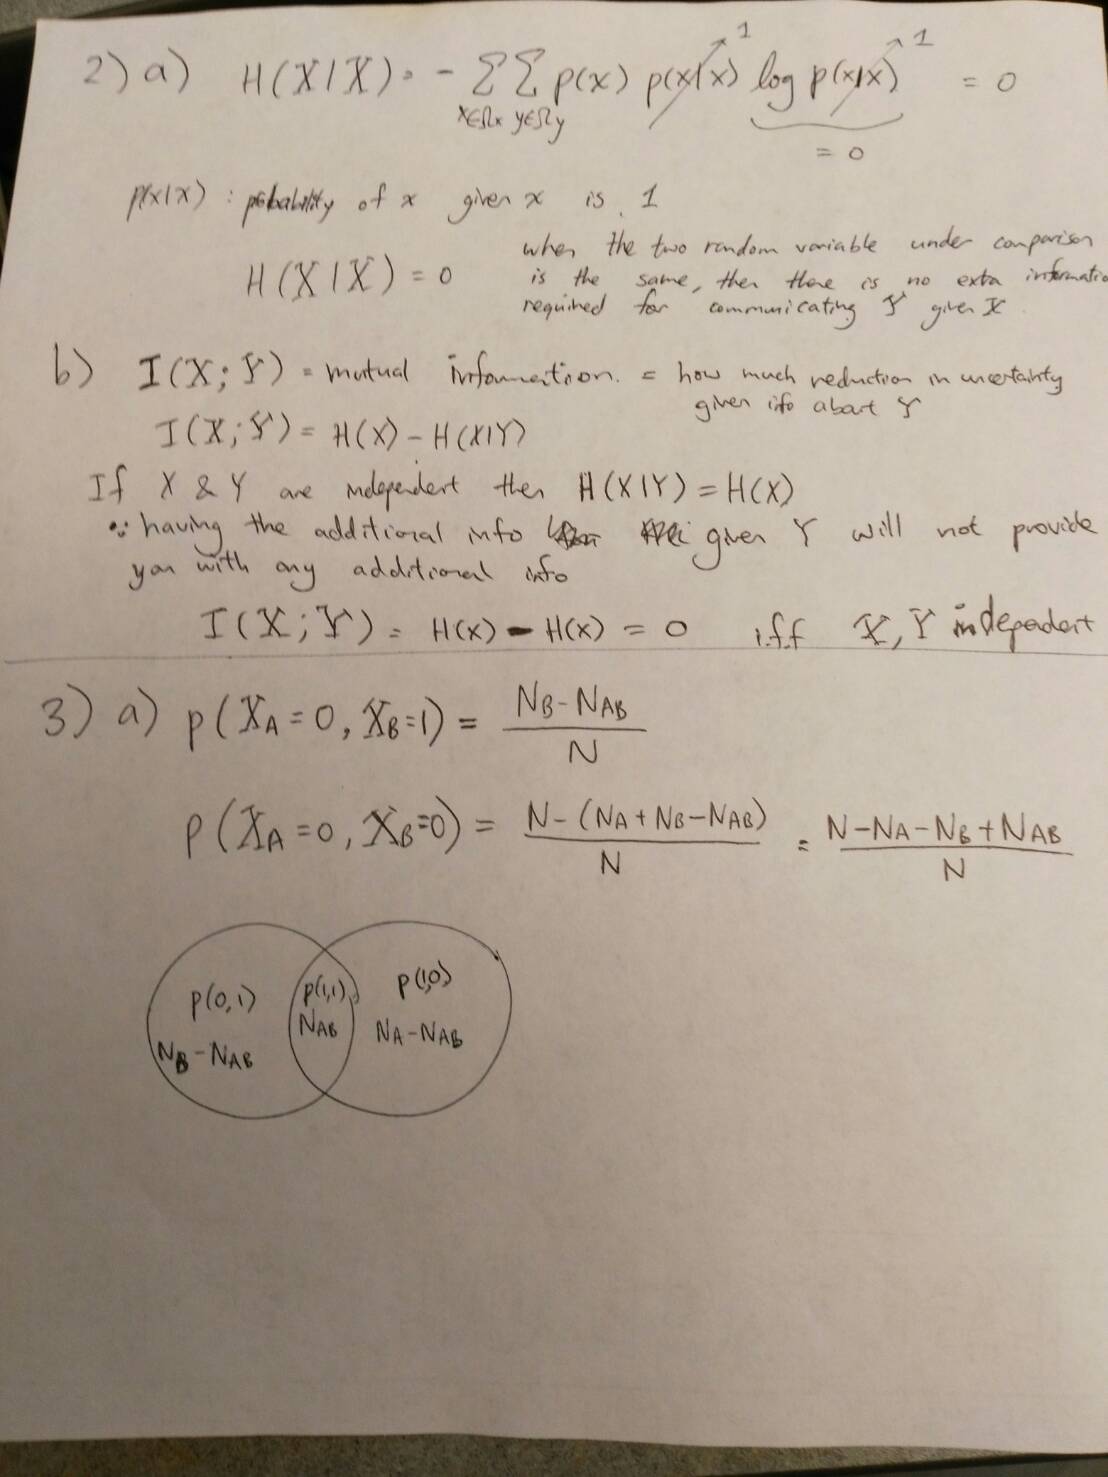 2) a) H(X|X) = - ΣΣ p(x) p(x|x) log p(x|x) = 0
1 1
x∈Ωx y∈Ωy
= 0
p(x|x) : probability of x given x is 1
when the two random variable under comparison
H(X|X) = 0 is the same, then there is no extra informatio
required for communicating Y given X
b) I(X;Y) = mutual information. = how much reduction in uncertainty
given info about Y
I(X;Y) = H(X) - H(X|Y)
If X & Y are independent then H(X|Y) = H(X)
∵ having the additional info given Y will not provide
you with any additional info
I(X;Y) = H(X) - H(X) = 0 iff X, Y independent
3) a) p(XA = 0, XB = 1) = NB - NAB / N
p(XA = 0, XB = 0) = N - (NA + NB - NAB) / N = N - NA - NB + NAB / N
p(0,1) p(1,1) p(1,0)
NB - NAB NAB NA - NAB